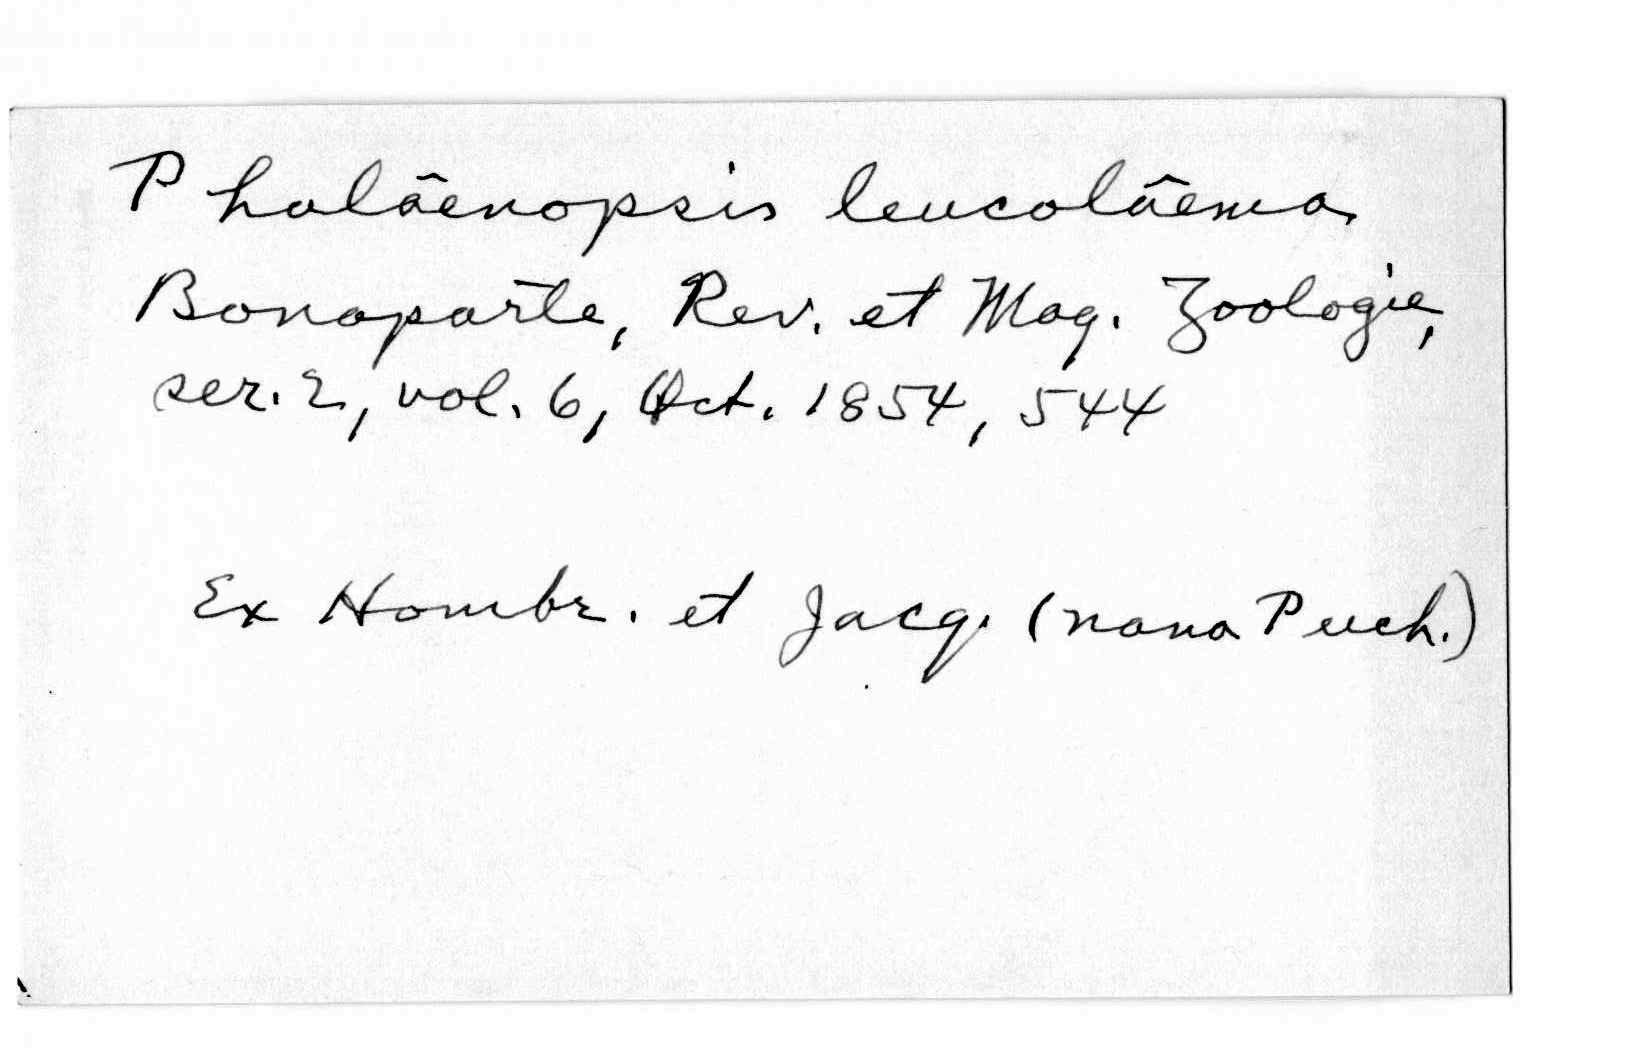 Phalâenopsis leucolâema
Bonaparte, Rev. et Mag. Zoologie,
ser. 2, vol. 6, Oct. 1854, 544
Ex Hombr. et Jacq. (nana Puch.)